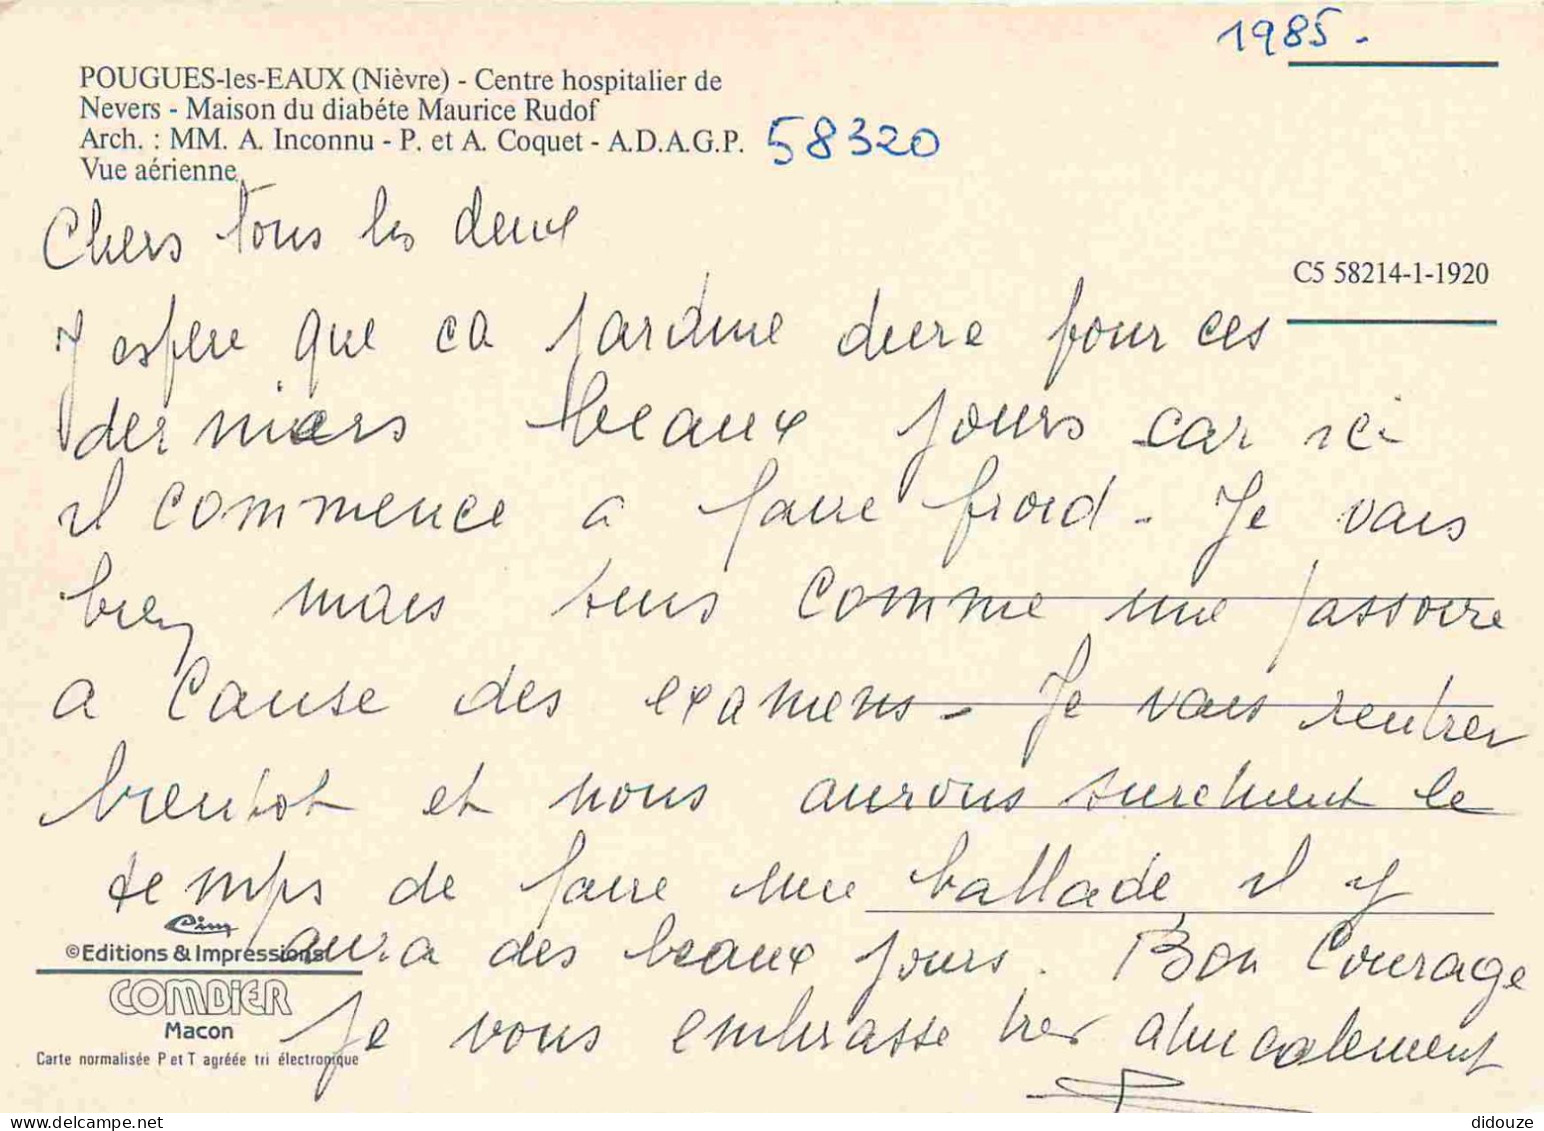 1985.
POUGUES-les-EAUX (Nièvre) - Centre hospitalier de
Nevers - Maison du diabéte Maurice Rudof
Arch. : MM. A. Inconnu - P. et A. Coquet - A.D.A.G.P. 58320
Vue aérienne
Chers tous les deux
C5 58214-1-1920
J espere que ca jardine dure pour ces
derniers beaux jours car ici
il commence a faire froid - Je vais
bien mais suis comme une passoire
a cause des examens - Je vais rentrer
bientot et nous aurons surement le
temps de faire une ballade il y
aura des beaux jours. Bon Courage
Je vous embrasse tres amicalement
Cim
©Editions & Impressions
COMBIER
Macon
Carte normalisée P et T agréée tri électronique
didouze